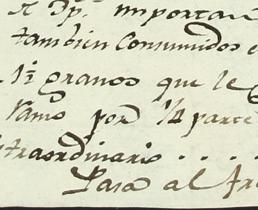 Dp. importan
tambien Consumidos e
granos que le
ramo por 1/4 parte
traordinario . . . .
Pasa al fr